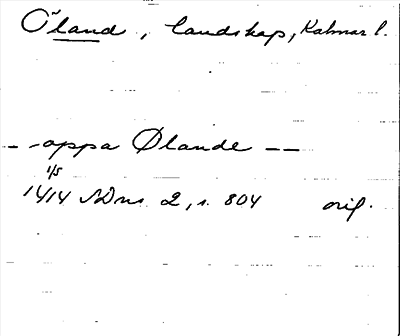 Öland, landskap, Kalmar l.
- - oppa Ølande - -
1/5
1414 SDns 2, s. 804 orig.